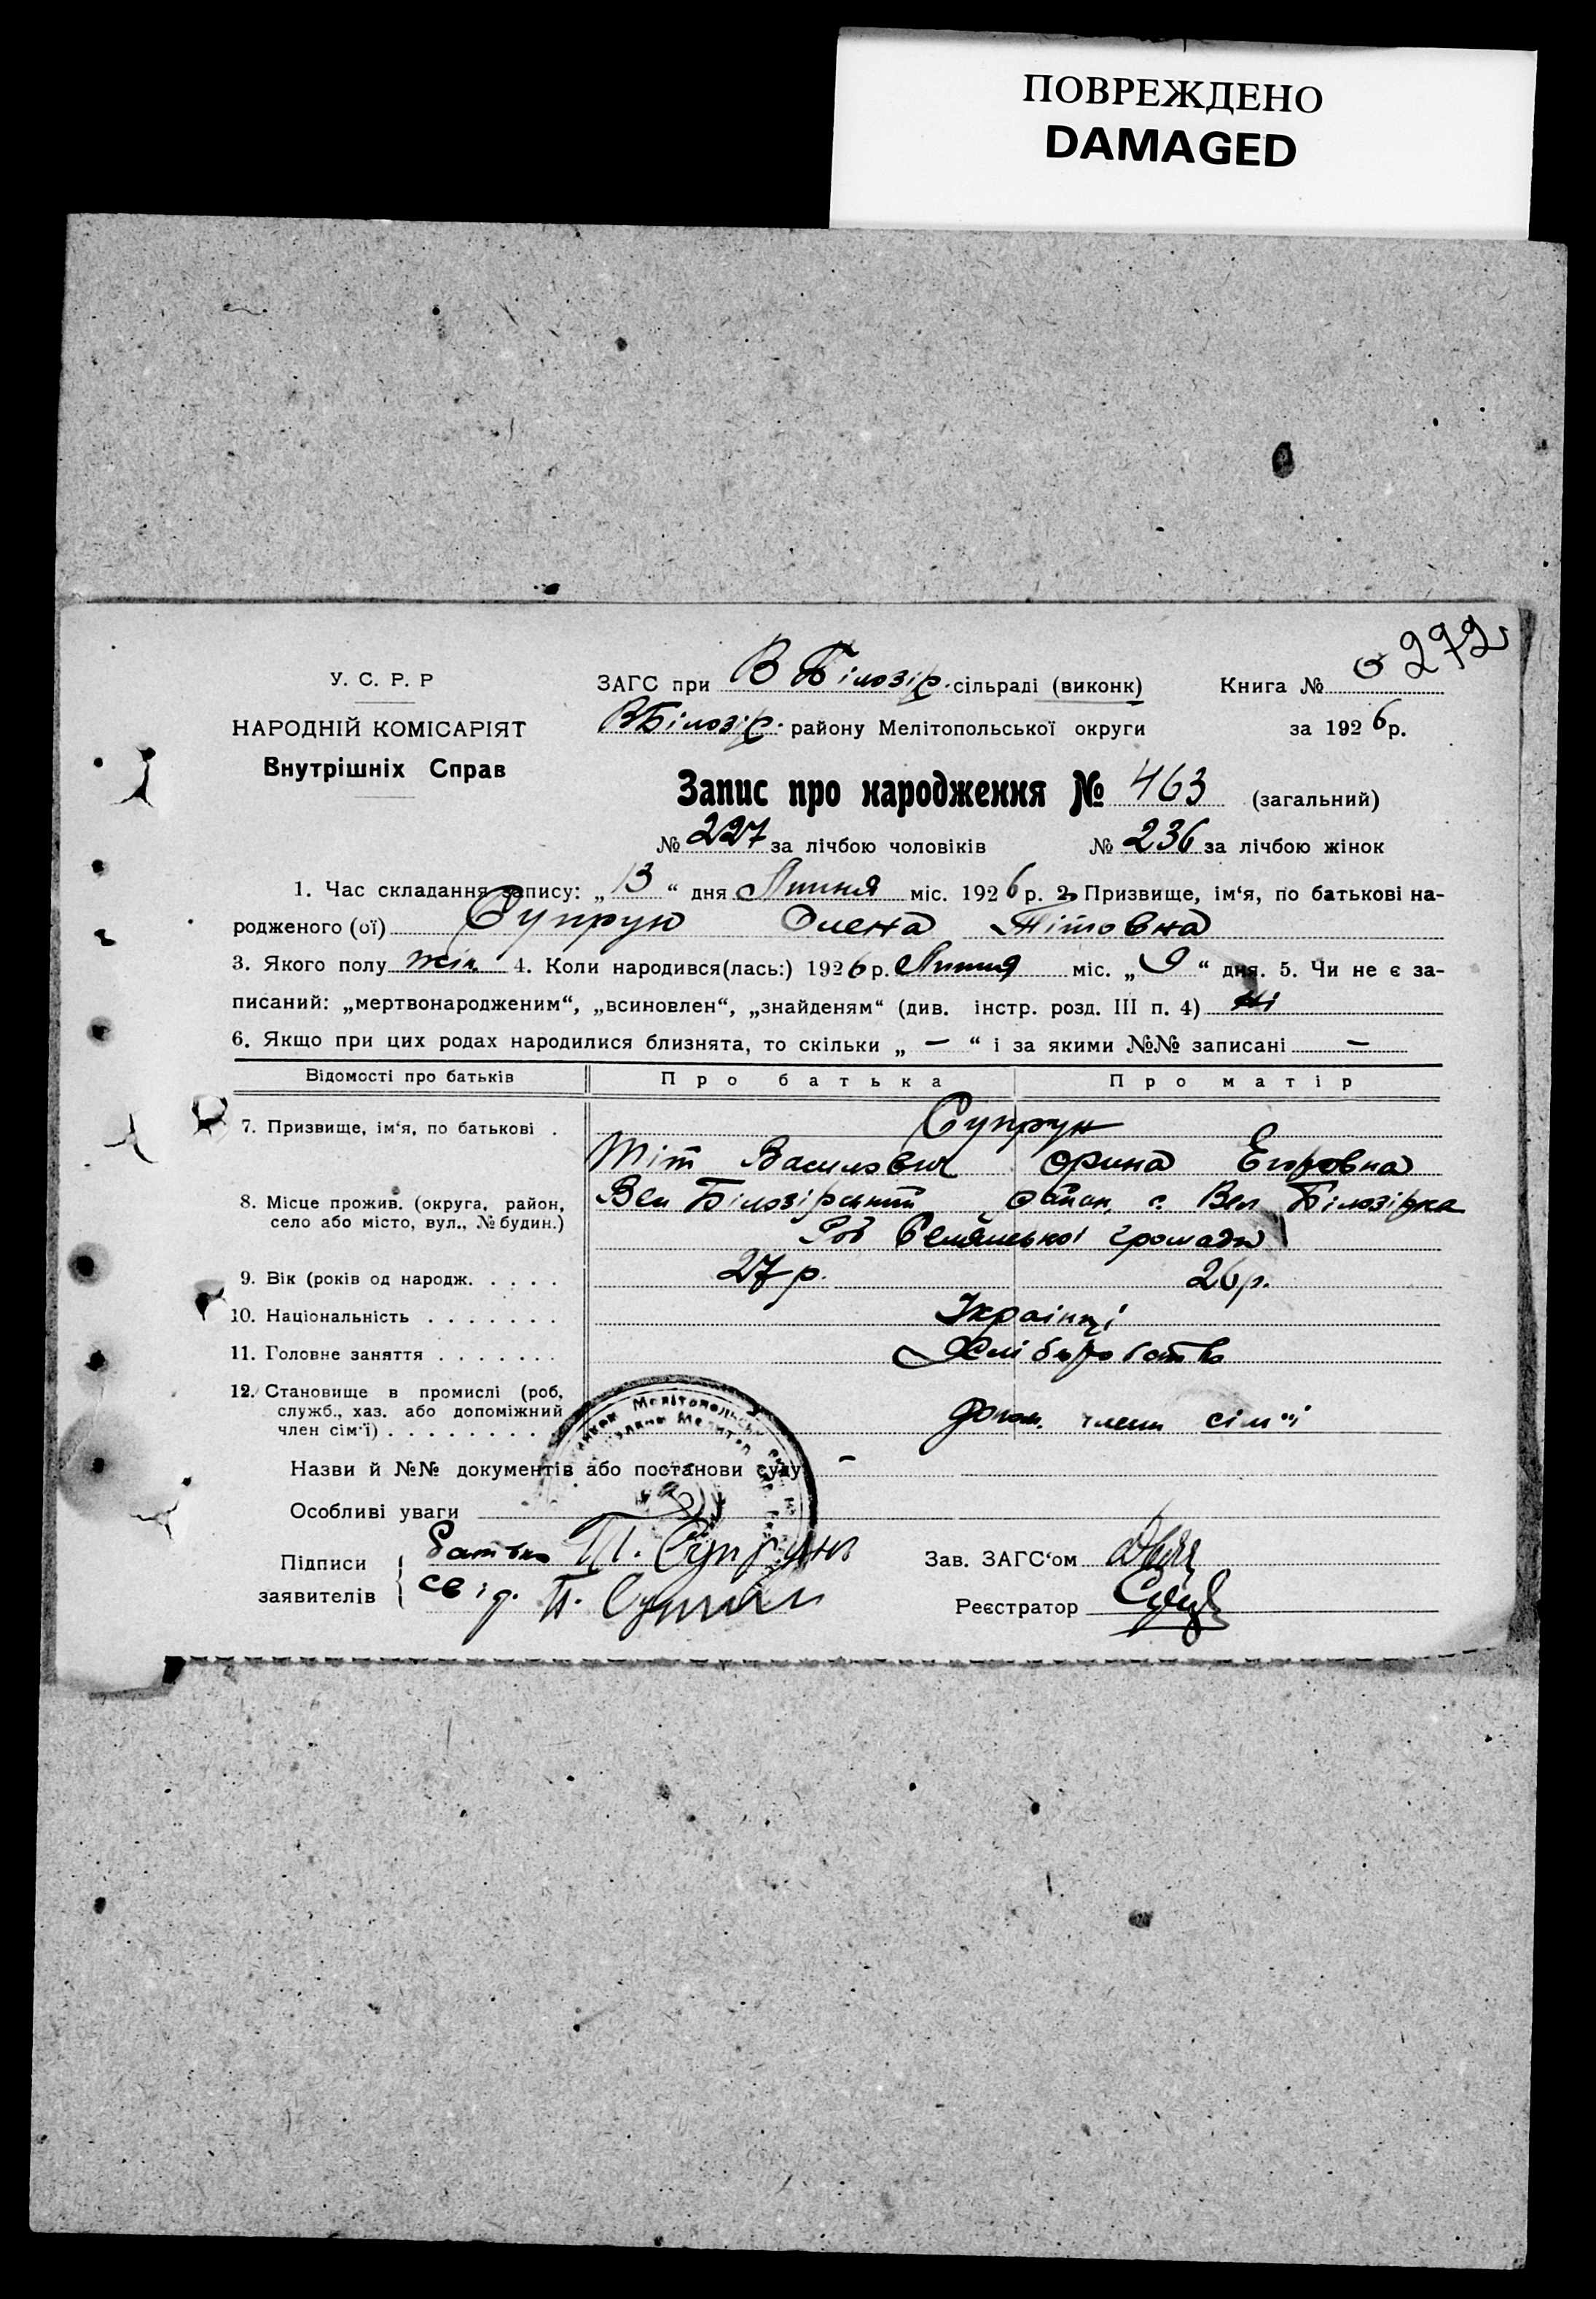 ПОВРЕЖДЕНО
DAMAGED
272
У. С. Р. Р
НАРОДНІЙ КОМІСАРІЯТ
Внутрішніх Справ
ЗАГС при В Білозір. сільраді (виконк)
Книга №
ВБілозір. району Мелітопольської округи
за 1926 р.
Запис про народження № 463 (загальний)
№ 227 за лічбою чоловіків № 236 за лічбою жінок
1. Час складання запису: „13“ дня Липня міс. 1926 р. 2. Призвище, ім‘я, по батькові на-
родженого (ої) Супрун Олена Тітовна
3. Якого полу жін. 4. Коли народився(лась:) 1926 р. Липня міс. „9“ дня. 5. Чи не є за-
писаний: „мертвонародженим“, „всиновлен“, „знайденям“ (див. інстр. розд. III п. 4) ні
6. Якщо при цих родах народилися близнята, то скільки „ — “ і за якими №№ записані —
Відомості про батьків Про батька Про матір
7. Призвище, ім‘я, по батькові . Супрун
Тіт Василович Орина Егоровна
8. Місце прожив. (округа, район,
село або місто, вул., № будин.)
Вел Білозірський район, с. Вел Білозірка
громади
9. Вік (років од народж. . . . . 27 р. 26 р.
10. Національність . . . . . . . Українці
11. Головне заняття . . . . . . . Хліборобство
12. Становище в промислі (роб,
служб., хаз. або допоміжний
член сім‘ї) . . . . . . . . . допом. член сім"ї
Назви й №№ документів або постанови суду —
Особливі уваги
Підписи
заявителів
батько Т. Супрун
свід. П.
Зав. ЗАГС‘ом
Реєстратор